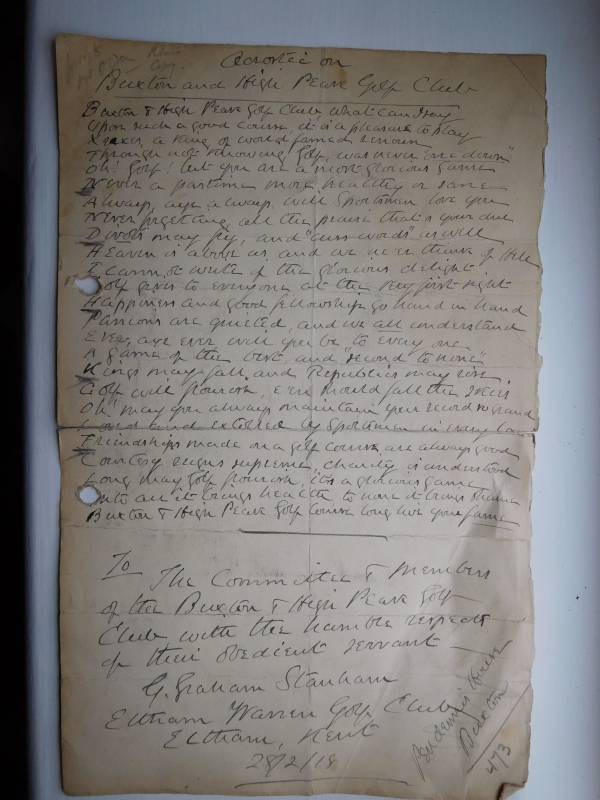 Acrostic on
Buxton and High Peak Golf Club
Buxton & High Peak Golf Club, what can I say
Upon such a good course, it is a pleasure to play
Xerxes, a King of world famed renown
Through not knowing Golf, was never "one down"
Oh! Golf! but you are a most glorious game
Never a pastime more healthy or sane
Always, aye always, will Sportsmen love you
Never forgetting all the praise that's your due
Divots may fly, and "cuss words" as well
Heaven is above us, and we ne'er think of Hell
I cannot write of the glorious delight
Golf gives to everyone at the very first sight
Happiness and good fellowship go hand in hand
Passions are quieted, and we all understand
Ever, aye ever will you be to every one
A game of the best and "second to none"
Kings may fall, and Republics may rise
Golf will flourish, e'en should fall the skies
Oh! may you always maintain your record so grand
and extolled by Sportsmen in every
Friendships made on a golf course are always good
Courtesy reigns supreme, charity is understood
Long may Golf flourish, its a glorious game
Unto all it brings health, to none it brings shame
Buxton & High Peak Golf Course long live your fame
To
The Committee & Members
of the Buxton & High Peak Golf
Club, with the humble respects
of their obedient servant
G. Graham Stanham
Eltham Warren Golf Club
Eltham, Kent
28/2/18
Buxton
473